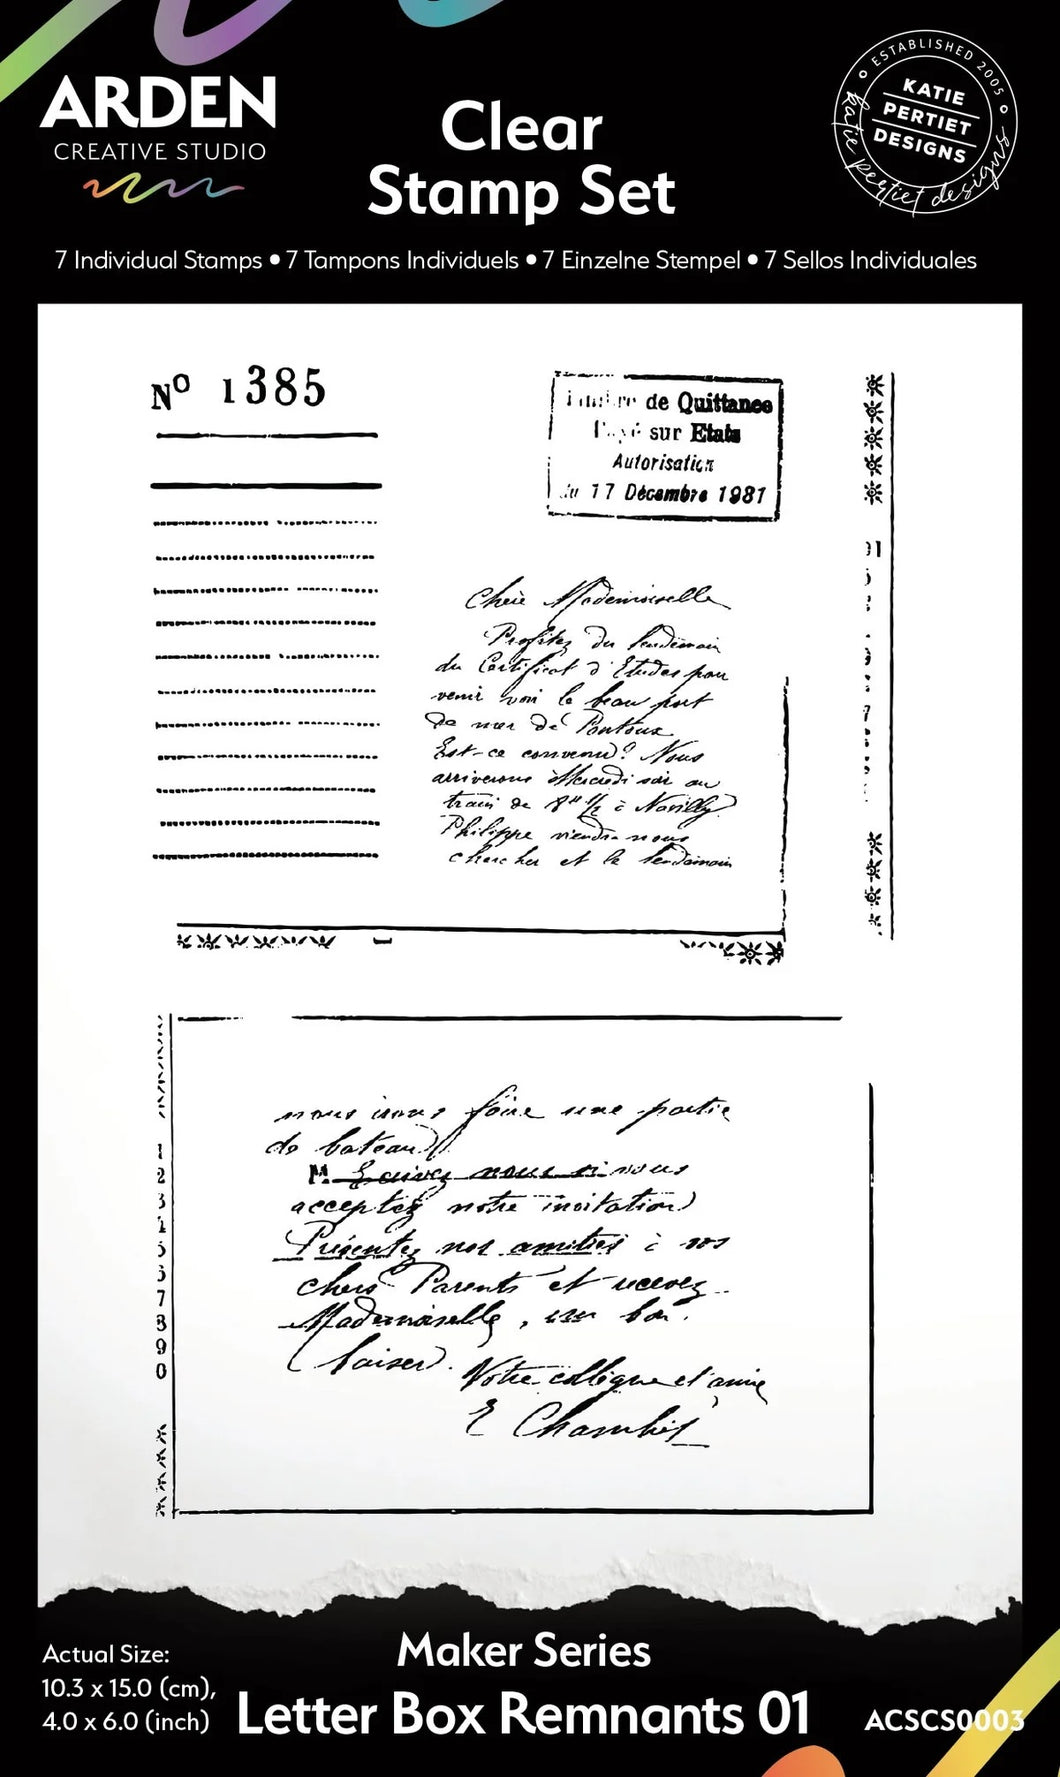 ARDEN
CREATIVE STUDIO
Clear
Stamp Set
ESTABLISHED 2005
KATIE
PERTIET
DESIGNS
katie pertiet designs
7 Individual Stamps • 7 Tampons Individuels • 7 Einzelne Stempel • 7 Sellos Individuales
Nº 1385
de Quittance
sur Etats
Autorisation
du 17 Décembre 1981
Chère Mademoiselle
Profitez du lendemain
du Certificat d'Etudes pour
venir voir le beau port
de mer de
Est-ce convenu? Nous
arriverons Mercredi soir au
train de à
Philippe viendra nous
chercher et le lendemain
nous irons faire une partie
de bateau
M. Ecrivez nous si vous
acceptez notre invitation
Présentez nos amitiés à vos
chers Parents et recevez
Mademoiselle, un bon
baiser. Votre collègue et amie
E
1
2
3
5
7
8
9
0
Maker Series
Letter Box Remnants 01
Actual Size:
10.3 x 15.0 (cm),
4.0 x 6.0 (inch)
ACSCS0003